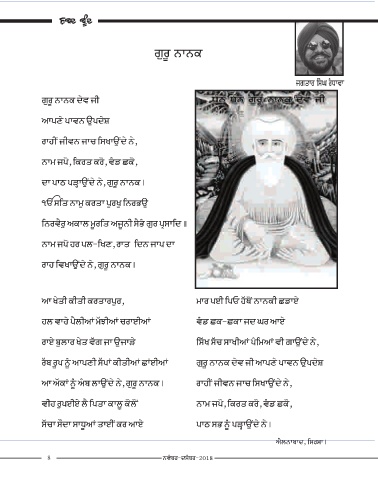 ਗੁਰੂ ਨਾਨਕ
ਜਗਤਾਰ ਸਿੰਘ ਰੰਧਾਵਾ
ਧੰਨ ਧੰਨ ਗੁਰੂ ਨਾਨਕ ਦੇਵ ਜੀ
ਗੁਰੂ ਨਾਨਕ ਦੇਵ ਜੀ
ਆਪਣੇ ਪਾਵਨ ਉਪਦੇਸ਼
ਰਾਹੀਂ ਜੀਵਨ ਜਾਚ ਸਿਖਾਉਂਦੇ ਨੇ,
ਨਾਮ ਜਪੋ, ਕਿਰਤ ਕਰੋ, ਵੰਡ ਛਕੋ,
ਦਾ ਪਾਠ ਪੜ੍ਹਾਉਂਦੇ ਨੇ, ਗੁਰੂ ਨਾਨਕ।
ੴ ਸਤਿ ਨਾਮੁ ਕਰਤਾ ਪੁਰਖੁ ਨਿਰਭਉ
ਨਿਰਵੈਰੁ ਅਕਾਲ ਮੂਰਤਿ ਅਜੂਨੀ ਸੈਭੰ ਗੁਰ ਪ੍ਰਸਾਦਿ॥
ਨਾਮ ਜਪੋ ਹਰ ਪਲ-ਖਿਣ, ਰਾਤ ਦਿਨ ਜਾਪ ਦਾ
ਰਾਹ ਵਿਖਾਉਂਦੇ ਨੇ, ਗੁਰੂ ਨਾਨਕ।
ਆ ਖੇਤੀ ਕੀਤੀ ਕਰਤਾਰਪੁਰ,
ਹਲ ਵਾਹੇ ਪੈਲੀਆਂ ਮੱਝੀਆਂ ਚਰਾਈਆਂ
ਰਾਏ ਬੁਲਾਰ ਖੇਤ ਵੱਗ ਜਾ ਉਜਾੜੇ
ਰੱਬ ਰੂਪ ਨੂੰ ਆਪਣੀ ਸੱਪਾਂ ਕੀਤੀਆਂ ਛਾਂਈਆਂ
ਆ ਔਕਾਂ ਨੂੰ ਅੰਬ ਲਾਉਂਦੇ ਨੇ, ਗੁਰੂ ਨਾਨਕ।
ਵੀਹ ਰੁਪਈਏ ਲੈ ਪਿਤਾ ਕਾਲੂ ਕੋਲੋਂ
ਸੱਚਾ ਸੌਦਾ ਸਾਧੂਆਂ ਤਾਈਂ ਕਰ ਆਏ
ਮਾਰ ਪਈ ਪਿਓ ਹੱਥੋਂ ਨਾਨਕੀ ਛਡਾਏ
ਵੰਡ ਛਕ-ਛਕਾ ਜਦ ਘਰ ਆਏ
ਸਿੱਖ ਸੋਚ ਸਾਖੀਆਂ ਪੰਮਿਆਂ ਵੀ ਗਾਉਂਦੇ ਨੇ,
ਗੁਰੂ ਨਾਨਕ ਦੇਵ ਜੀ ਆਪਣੇ ਪਾਵਨ ਉਪਦੇਸ਼
ਰਾਹੀਂ ਜੀਵਨ ਜਾਚ ਸਿਖਾਉਂਦੇ ਨੇ,
ਨਾਮ ਜਪੋ, ਕਿਰਤ ਕਰੋ, ਵੰਡ ਛਕੋ,
ਪਾਠ ਸਭ ਨੂੰ ਪੜ੍ਹਾਉਂਦੇ ਨੇ।
ਐਲਨਾਬਾਦ, ਸਿਰਸਾ।
8
ਨਵੰਬਰ-ਦਸੰਬਰ-2018